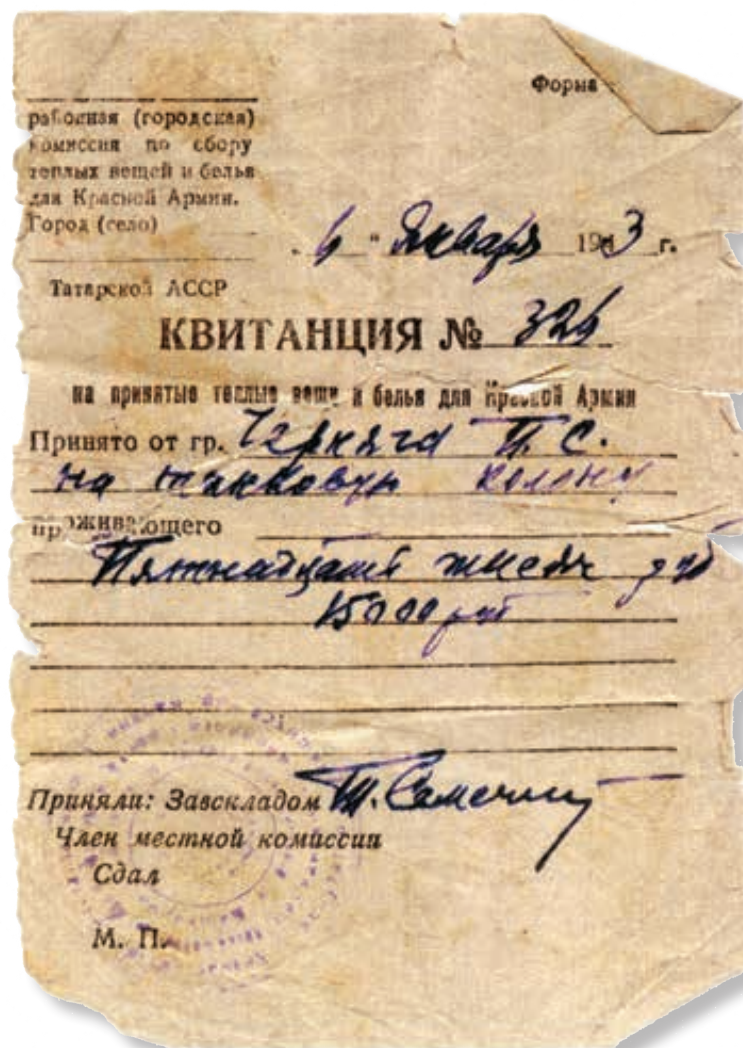 Форма
районная (городская)
комиссия по сбору
теплых вещей и белья
для Красной Армии.
Город (село)
"6" Января 1943 г.
Татарской АССР
КВИТАНЦИЯ № 326
на принятые теплые вещи и белья для Красной Армии
Принято от гр. Черняга П. С.
на танковую колону
проживающего
Пятнадцать тысяч руб
15000 руб
Приняли: Завскладом
Член местной комиссии
Сдал
М. П.